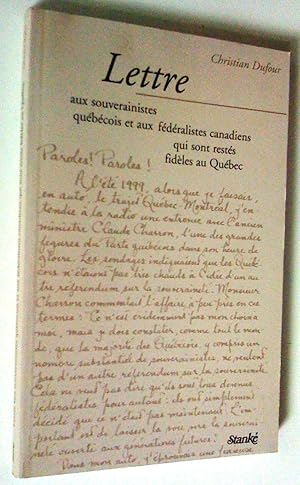 Christian Dufour
Lettre
aux souverainistes
québécois et aux fédéralistes canadiens
qui sont restés
fidèles au Québec
Paroles! Paroles!
À l'été 1999, alors que je faisais,
en auto, le trajet Québec-Montréal, j'en-
tendis à la radio une entrevue avec l'ancien
ministre Claude Charron, l'une des grandes
figures du Parti québécois dans son heure de
gloire. Les sondages indiquaient que les Québé-
cois n'étaient pas très chauds à l'idée d'un au
tre referendum sur la souveraineté. Monsieur
Charron commentait l'affaire à peu près en ces
termes: "Ce n'est évidemment pas mon choix à
moi, mais je dois constater, comme tout le mon
de, que la majorité des Québécois, y compris un
nombre substantiel de souverainistes, ne veulent
pas d'un autre référendum sur la souveraineté
Cela ne veut pas dire qu'ils sont tous devenus
fédéralistes pour autant: ils ont simplement
décidé que ce n'était pas maintenant. L'im-
portant est de laisser la voie vers la souverai
neté ouverte aux générations futures."
Dans mon auto j'éprouvais une
Stanké